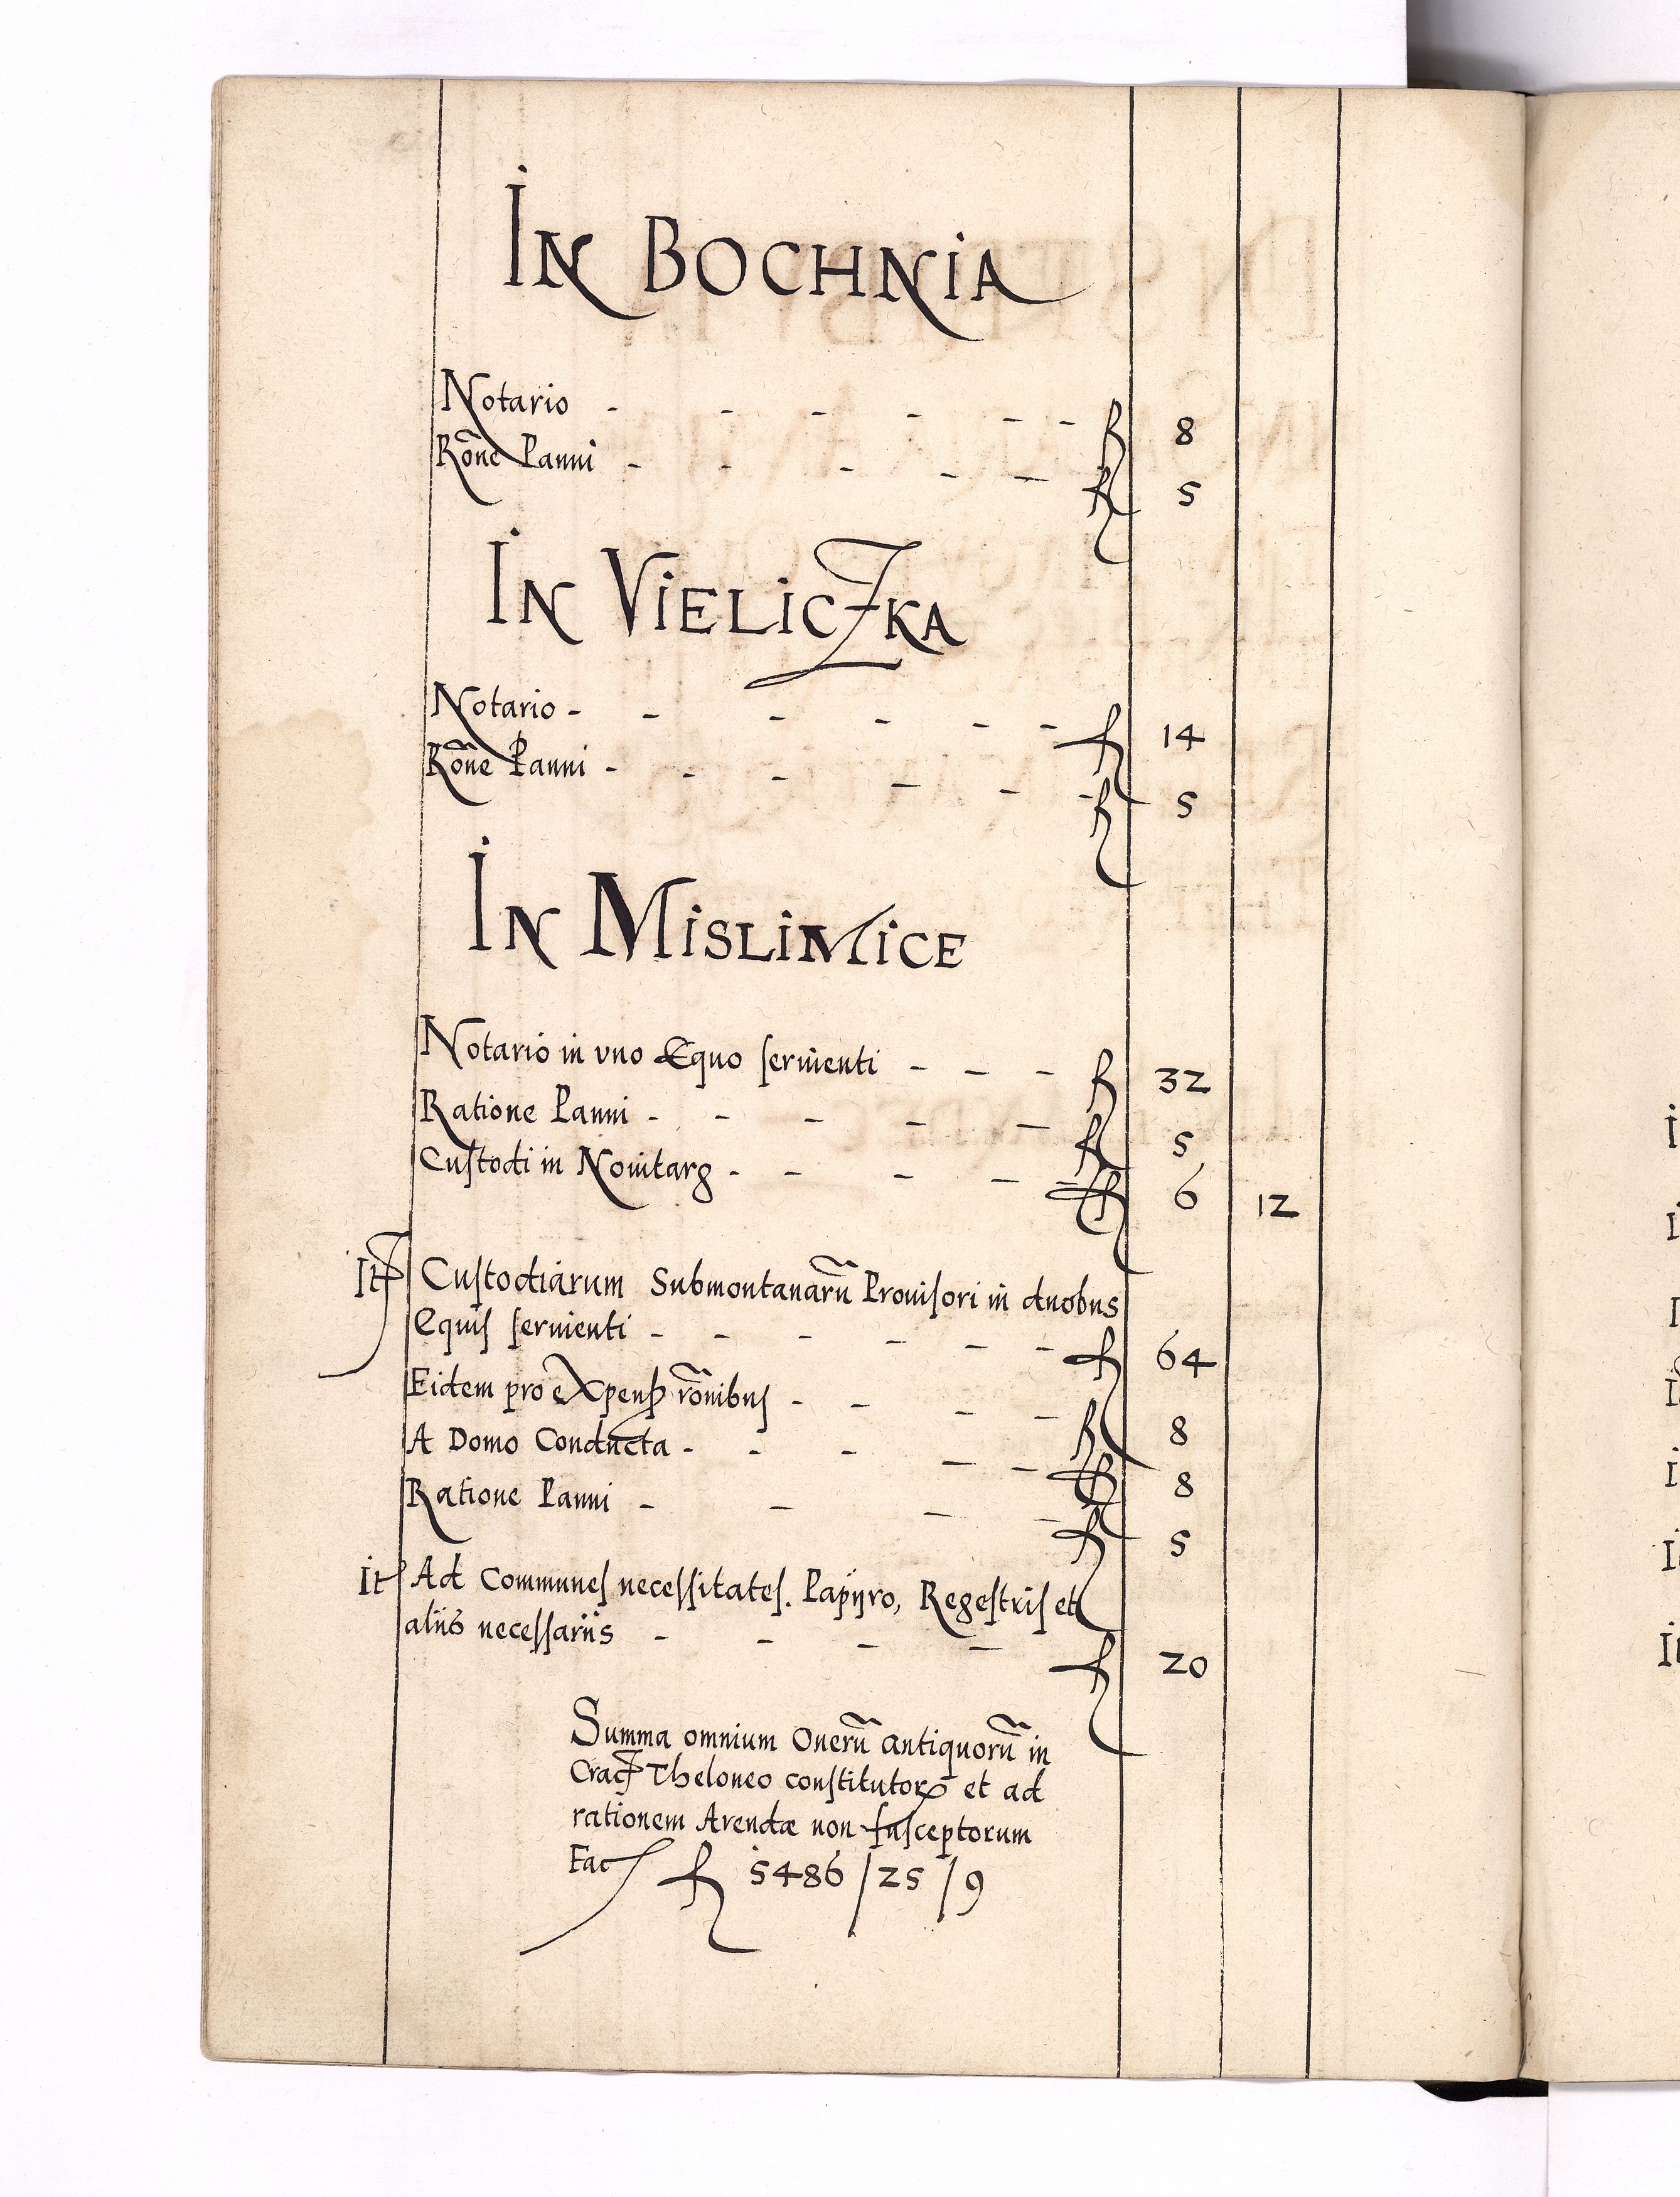 In Bochnia
Notario - - - - - - f 8
Rõne Panni - - - - - f 5
In VielicZka
Notario - - - - - - f 14
Rõne Panni - - - - - - f 5
In Mislimice
Notario in vno Equo seruienti - - - f 32
Ratione Panni - - - - - f 5
Custodi in Nouitarg - - - - - f 6 12
It Custodiarum Submontanarũ Prouisori in duobus
Equis seruienti - - - - - - f 64
Eidem pro eXpens rõnibus - - - - f 8
A Domo Conducta - - - - - f 8
Ratione Panni - - - - f 5
It Ad Communes necessitates. Papÿro, Regestris et
alijs necessarijs - - - - f 20
Summa omnium Onerũ antiquorũ in
Crac Theloneo constitutor et ad
rationem Arendæ non susceptorum
Fac f 5486 / 25 / 9